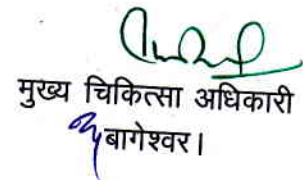 मुख्य चिकित्सा अधिकारी
बागेश्वर।